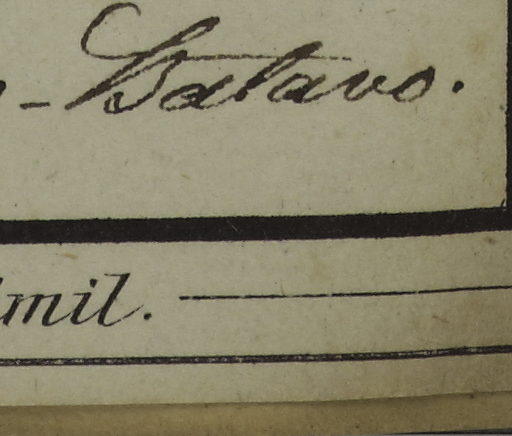 - Batavo.
imil.